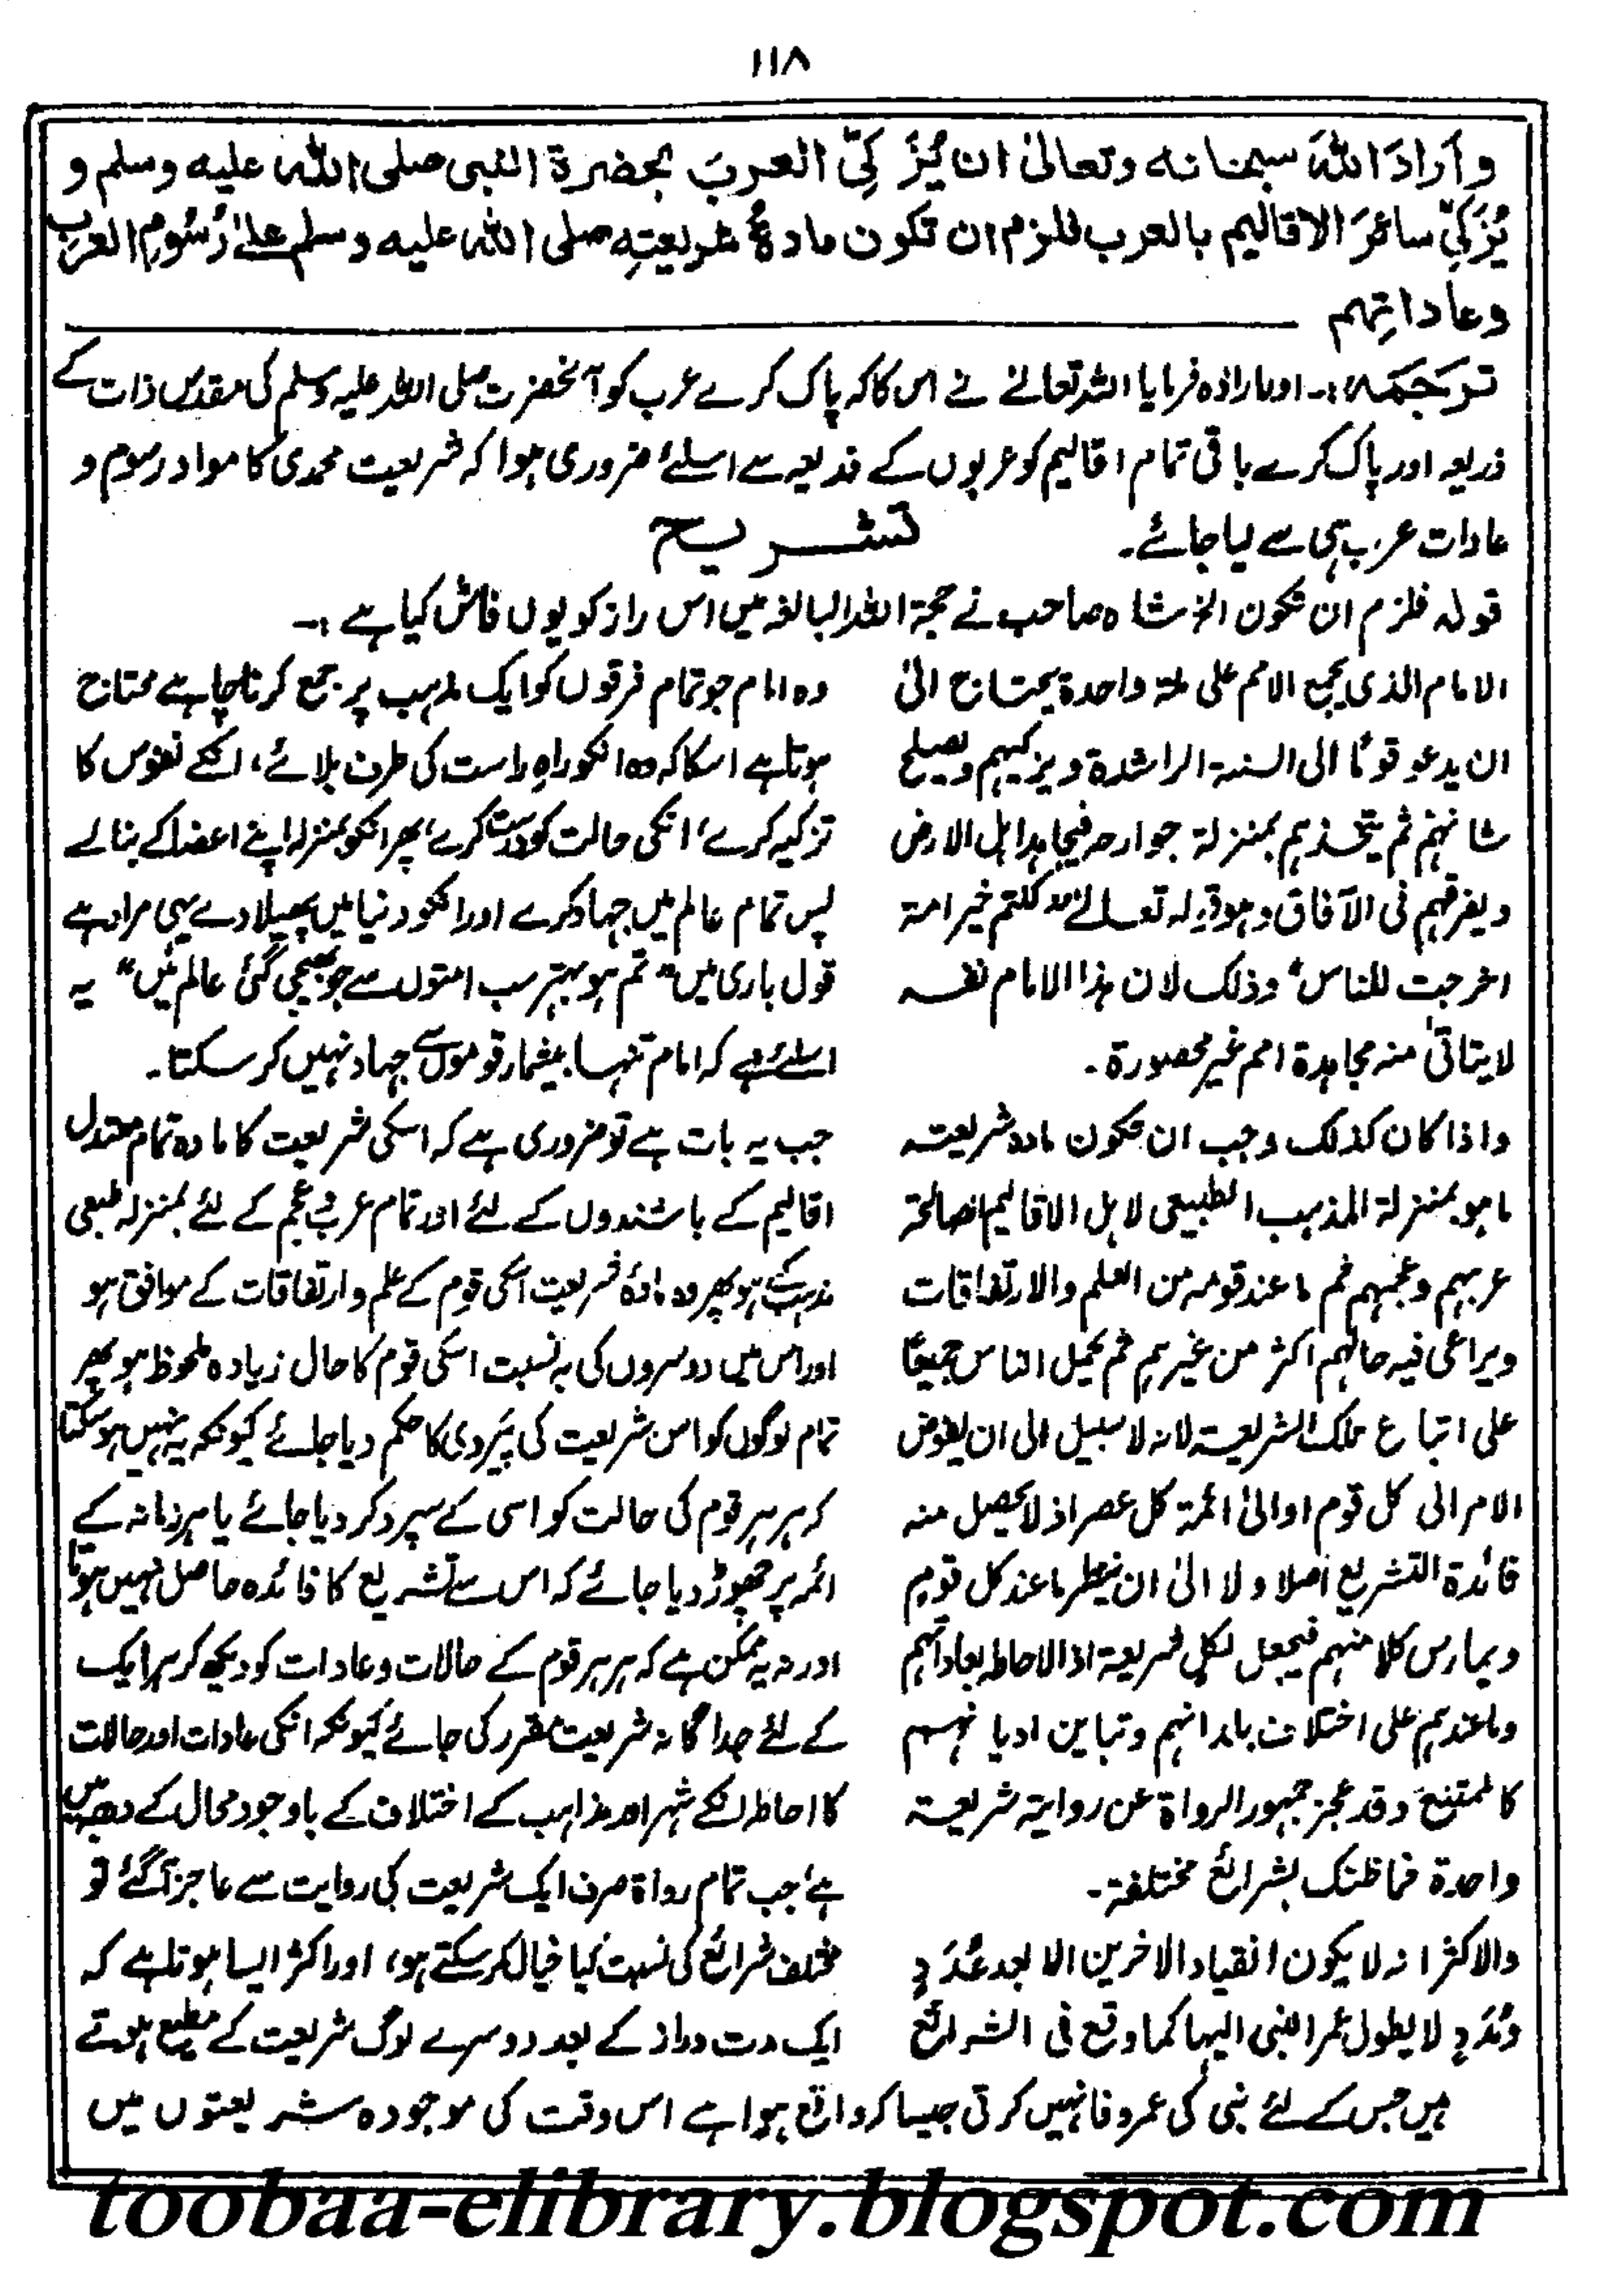 ۱۱۸
و أرادَ اللهَ سبحانه وتعالىٰ ان يُزَكِّیَ العربَ بحضرة النبی صلى الله عليه وسلم و
يُزَكِّیَ سائرَ الاقاليم بالعرب فلزم ان تكون مادةُ شريعتِه صلى الله عليه وسلم علىٰ رُسُومِ العرب
وعاداتِهم
ترجمہ:۔ اور ارادہ فرمایا اللہ تعالےٰ نے اس کا کہ پاک کرے عرب کو آنحضرت صلی اللہ علیہ وسلم کی مقدس ذات کے
ذریعہ اور پاک کرے باقی تمام اقالیم کو عربوں کے ذریعہ سے اسلئے ضروری ہوا کہ شریعت محمدی کا مواد رسوم و
عادات عرب ہی سے لیا جائے۔
تشریح
قولہ فلزم ان تکون الخ شاہ صاحب نے حجۃ اللہ البالغہ میں اس راز کو یوں فاش کیا ہے :۔
الامام الذی یجمع الامم علی ملۃ واحدۃ یحتاج الیٰ
ان یدعو قومًا الی السنۃ الراشدۃ و یزکیہم و یصلح
شانہم ثم یتخذہم بمنزلۃ جوارحہ فیجاہد اہل الارض
و یفرقہم فی الآفاق و ہو قولہ تعالےٰ ”کنتم خیر امۃ
اخرجت للناس“ وذلک لان ہذا الامام نفسہ
لایتاتیٰ منہ مجاہدۃ امم غیر محصورۃ۔
واذا کان کذلک وجب ان تکون مادہ شریعتہ
ما ہو بمنزلۃ المذہب الطبیعی لاہل الاقالیم الصالحۃ
عربہم و عجمہم ثم ما عند قومہ من العلم والارتفاقات
ویراعی فیہ حالہم اکثر من غیرہم ثم یحمل الناس جمیعًا
علی اتباع تلک الشریعۃ لانہ لا سبیل الی ان یفوض
الامر الی کل قوم او الیٰ ائمۃ کل عصر اذ لا یحصل منہ
فائدۃ التشریع اصلا و لا الیٰ ان ینظر ما عند کل قوم
و یمارس کلا منہم فیجعل لکل شریعۃ اذ الاحاطۃ بعاداتہم
وما عندہم علی اختلاف بلدانہم و تباین ادیانہم
کالممتنع و قد عجز جمہور الرواۃ عن روایۃ شریعۃ
واحدۃ فما ظنک بشرائع مختلفۃ۔
والاکثر انہ لا یکون انقیاد الاخرین الا بعد عُدَدٍ
ومُدَدٍ لا یطول عمر النبی الیہا کما وقع فی الشرائع
وہ امام جو تمام فرقوں کو ایک مذہب پر جمع کرنا چاہے محتاج
ہوتا ہے اسکا کہ وہ انکو راہِ راست کی طرف بلائے، انکے نفوس کا
تزکیہ کرے، انکی حالت کو درست کرے، پھر انکو بمنزلہ اپنے اعضا کے بنالے
پس تمام عالم میں جہاد کرے اور انکو دنیا میں پھیلا دے یہی مراد ہے
قول باری میں ”تم ہو بہتر سب امتوں سے جو بھیجی گئی عالم میں“ یہ
اسلئے ہے کہ امام تنہا بیشمار قوموں سے جہاد نہیں کر سکتا۔
جب یہ بات ہے تو ضروری ہے کہ اسکی شریعت کا مادہ تمام معتدل
اقالیم کے باشندوں کے لئے اور تمام عرب و عجم کے لئے بمنزلہ طبعی
مذہب کے ہو پھر وہ مادۂ شریعت اسکی قوم کے علم و ارتفاقات کے موافق ہو
اور اس میں دوسروں کی بہ نسبت اسکی قوم کا حال زیادہ ملحوظ ہو پھر
تمام لوگوں کو اس شریعت کی پیَروی کا حکم دیا جائے کیونکہ یہ نہیں ہو سکتا
کہ ہر ہر قوم کی حالت کو اسی کے سپرد کر دیا جائے یا ہر زمانہ کے
ائمہ پر چھوڑ دیا جائے کہ اس سے تشریع کا فائدہ حاصل نہیں ہوتا
اور نہ یہ ممکن ہے کہ ہر ہر قوم کے حالات و عادات کو دیکھ کر ہر ایک
کے لئے جداگانہ شریعت مقرر کی جائے کیونکہ انکی عادات اور حالات
کا احاطہ انکے شہر اور مذاہب کے اختلاف کے باوجود محال کے درجہ میں
ہے، جب تمام رواۃ صرف ایک شریعت کی روایت سے عاجز آگئے تو
مختلف شرائع کی نسبت کیا خیال کر سکتے ہو، اور اکثر ایسا ہوتا ہے کہ
ایک مدت دراز کے بعد دوسرے لوگ شریعت کے مطیع ہوتے
ہیں جس کے لئے نبی کی عمر وفا نہیں کرتی جیسا کہ واقع ہوا ہے اس وقت کی موجودہ شریعتوں میں
toobaa-elibrary.blogspot.com